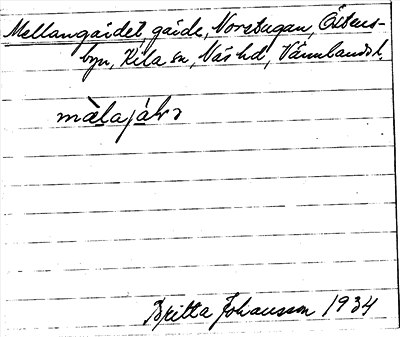 Mellangärdet, gärde, Norstugan, Östens-
byn, Kila sn, Näs hd, Värmlands l.
Britta Johansson 1934